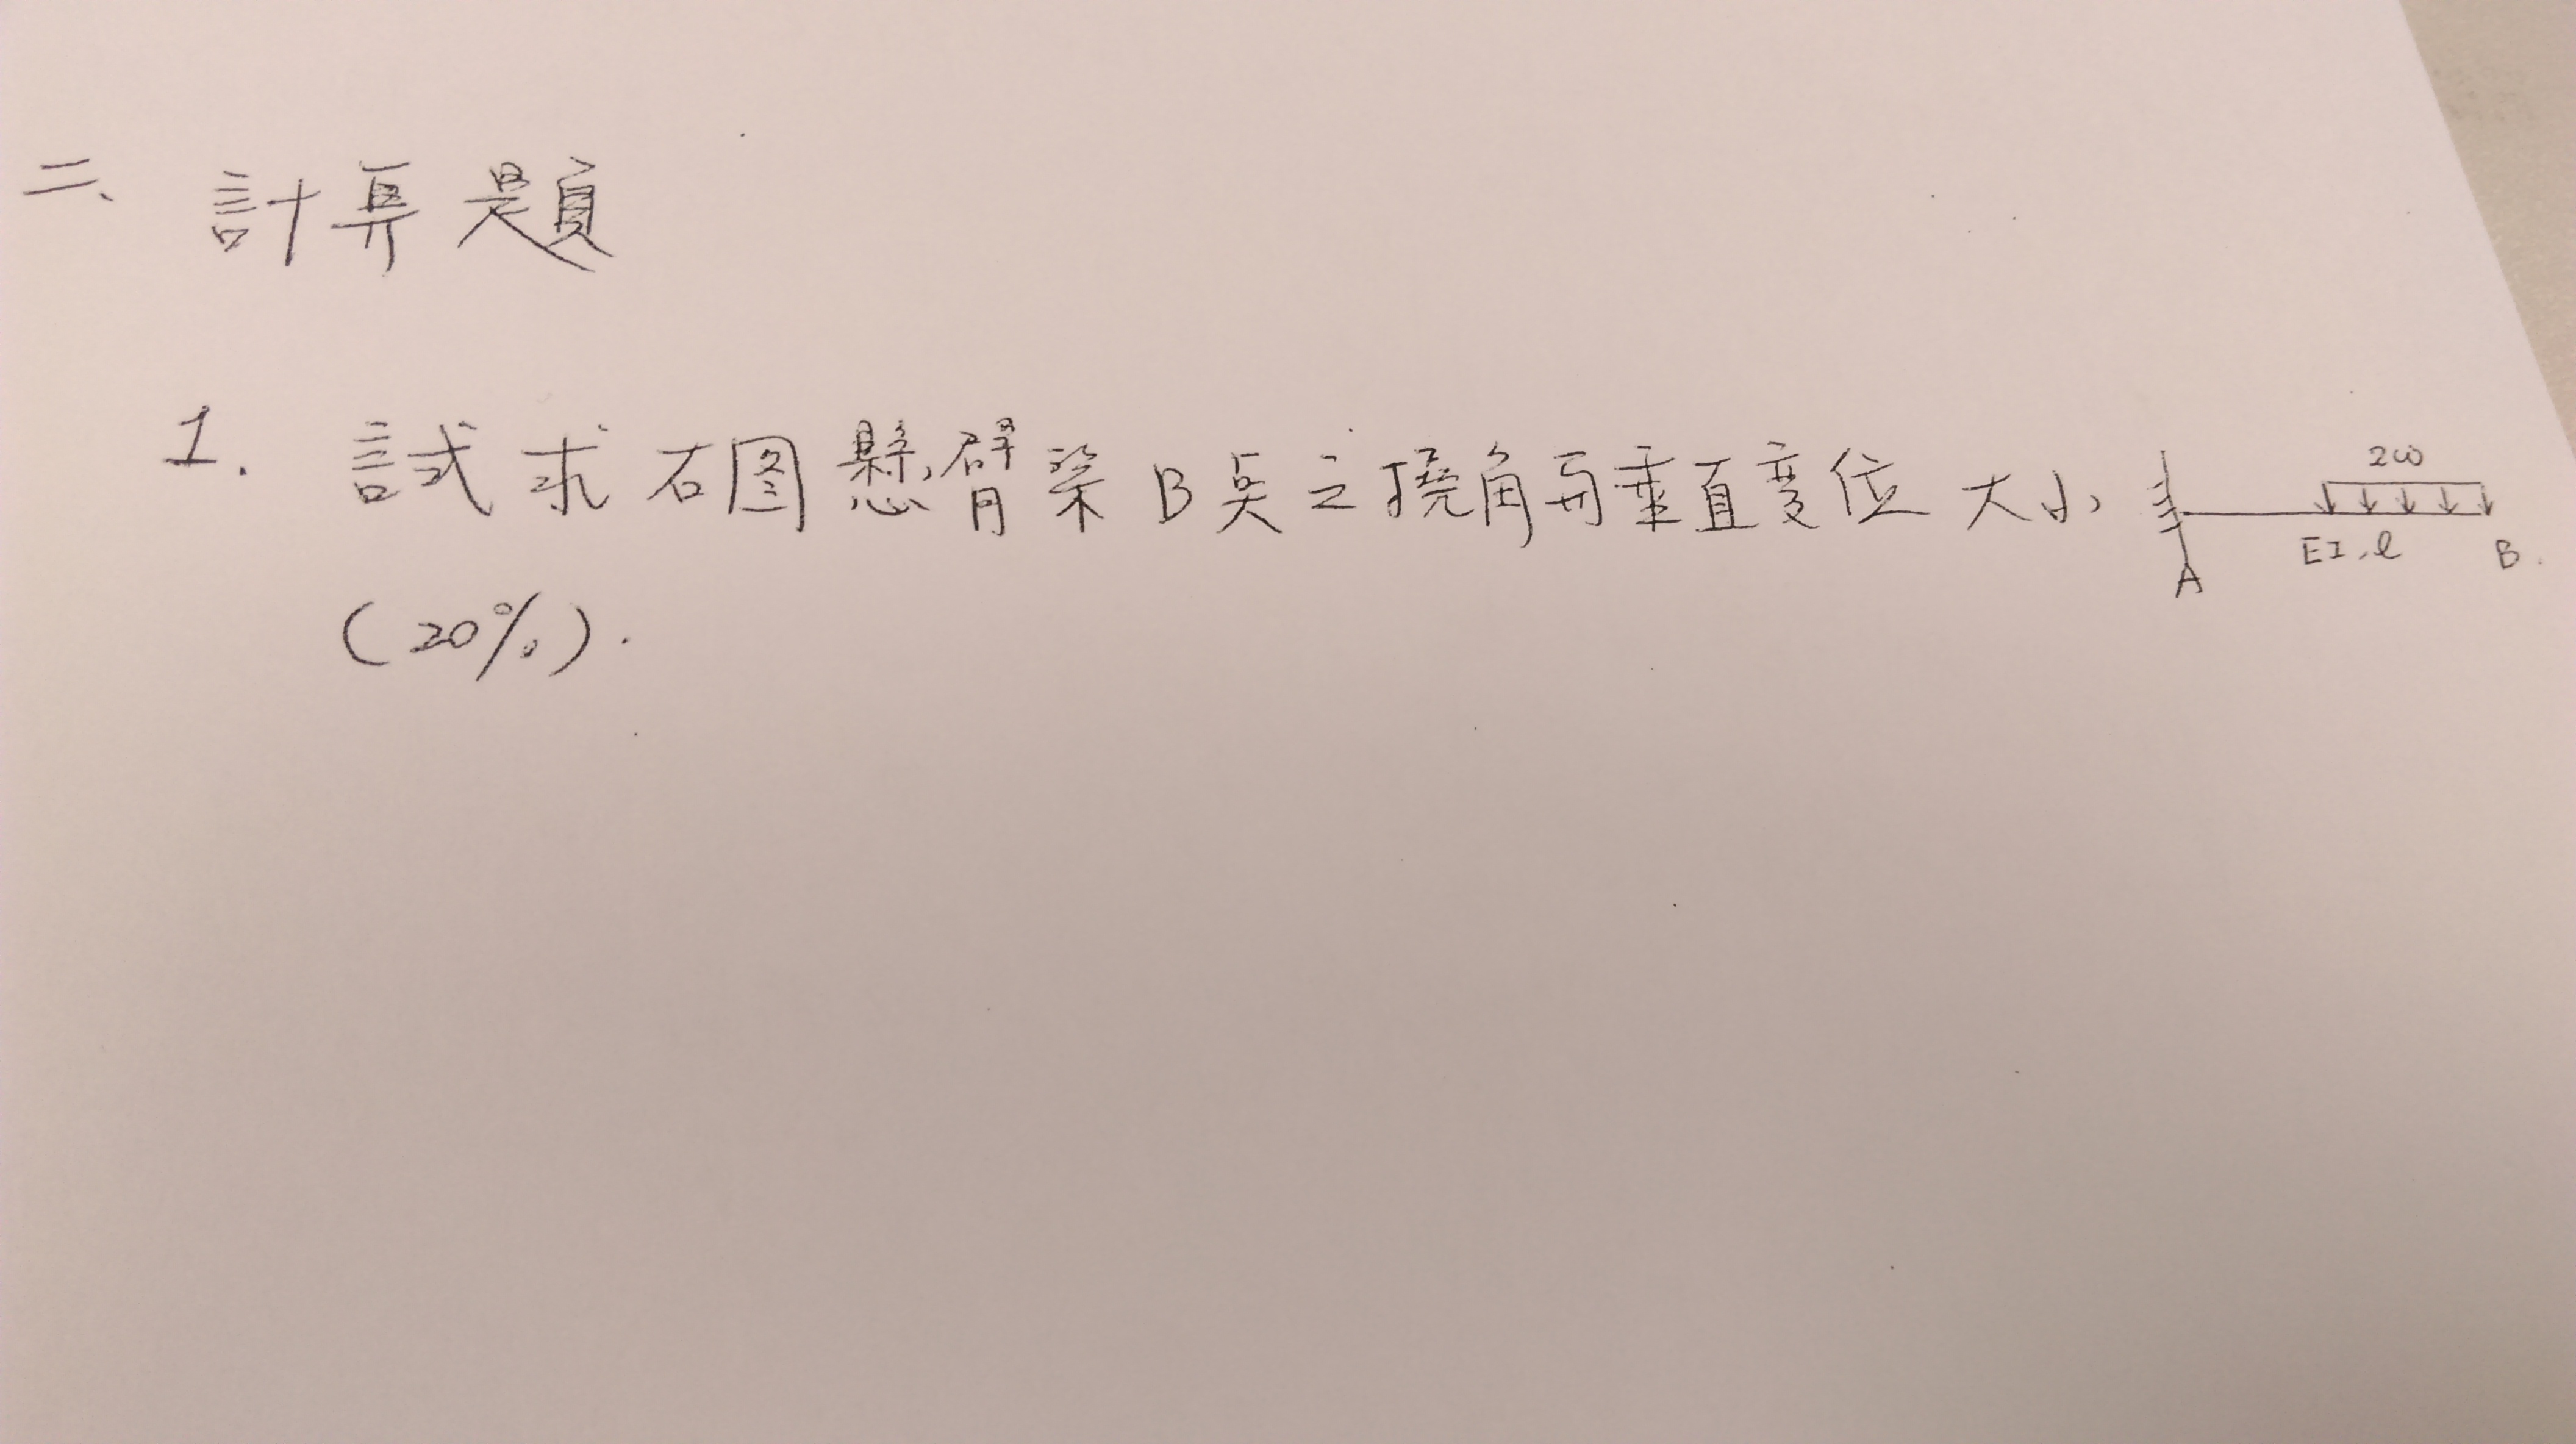 二、計算題
1. 試求右图懸臂梁B点之撓角與垂直变位大小
(20%).
2ω
EI, l
A
B.